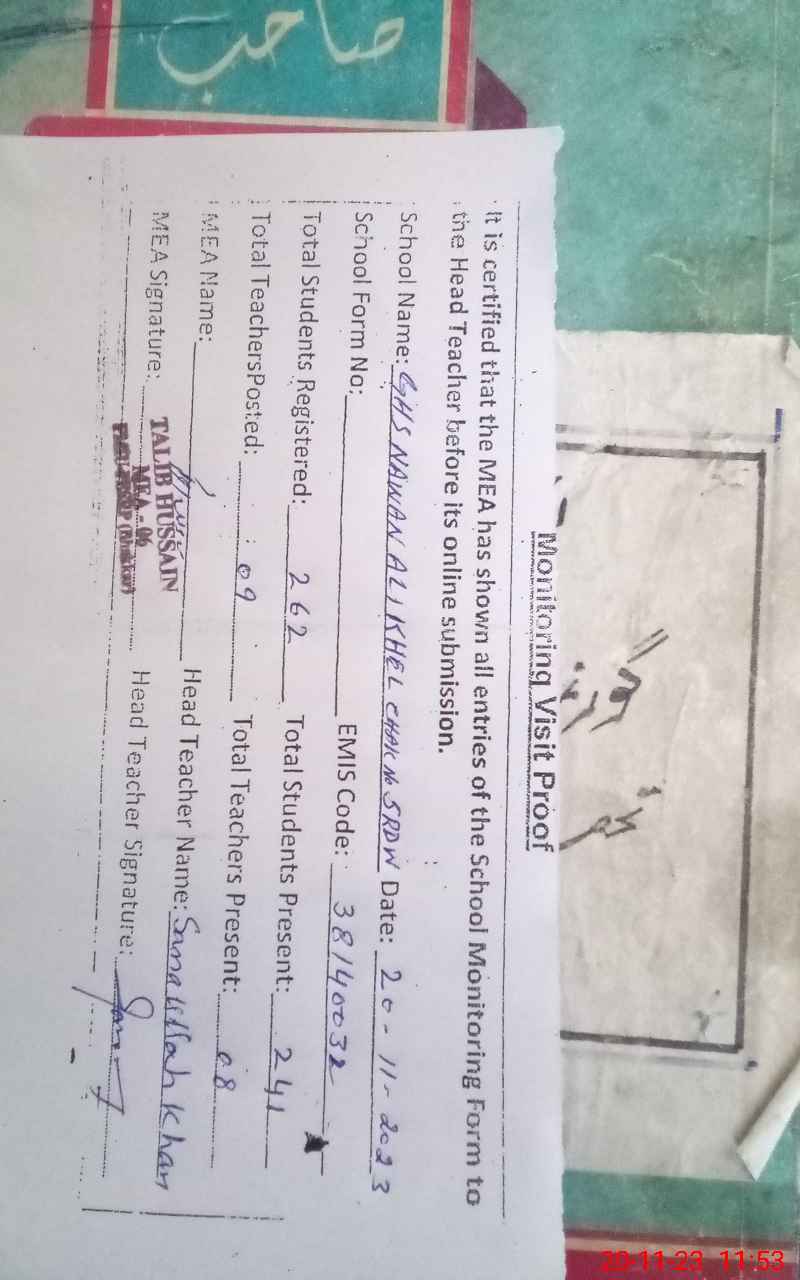 صاحب
Monitoring Visit Proof
It is certified that the MEA has shown all entries of the School Monitoring Form to
the Head Teacher before its online submission.
School Name: GHS NAWAN ALI KHEL CHAK No 5RDW Date: 20-11-2023
School Form No: EMIS Code: 38140032
Total Students Registered: 262 Total Students Present: 241
Total TeachersPosted: 09 Total Teachers Present: 08
MEA Name: Head Teacher Name: Sanaullah Khan
MEA Signature: Head Teacher Signature:
TALIB HUSSAIN
MEA - 06
20-11-23 11:53